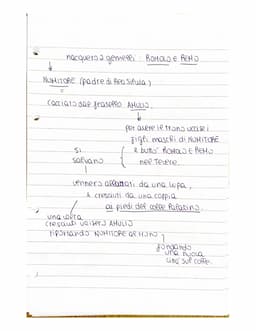 nacquero 2 gemelli: ROMOLO E REMO
NUMITORE (padre di Rea Silvia)
cacciato dal fratello AMULIO
per avere il trono uccise i
figli maschi di NUMITORE
e buttò ROMOLO E REMO
nel Tevere.
si
salvano
vennero allattati da una lupa,
e cresciuti da una coppia
ai piedi del colle Palatino
una volta
cresciuti uccisero AMULIO
riportando NUMITORE al trono
fondando
una nuova
città sul colle.